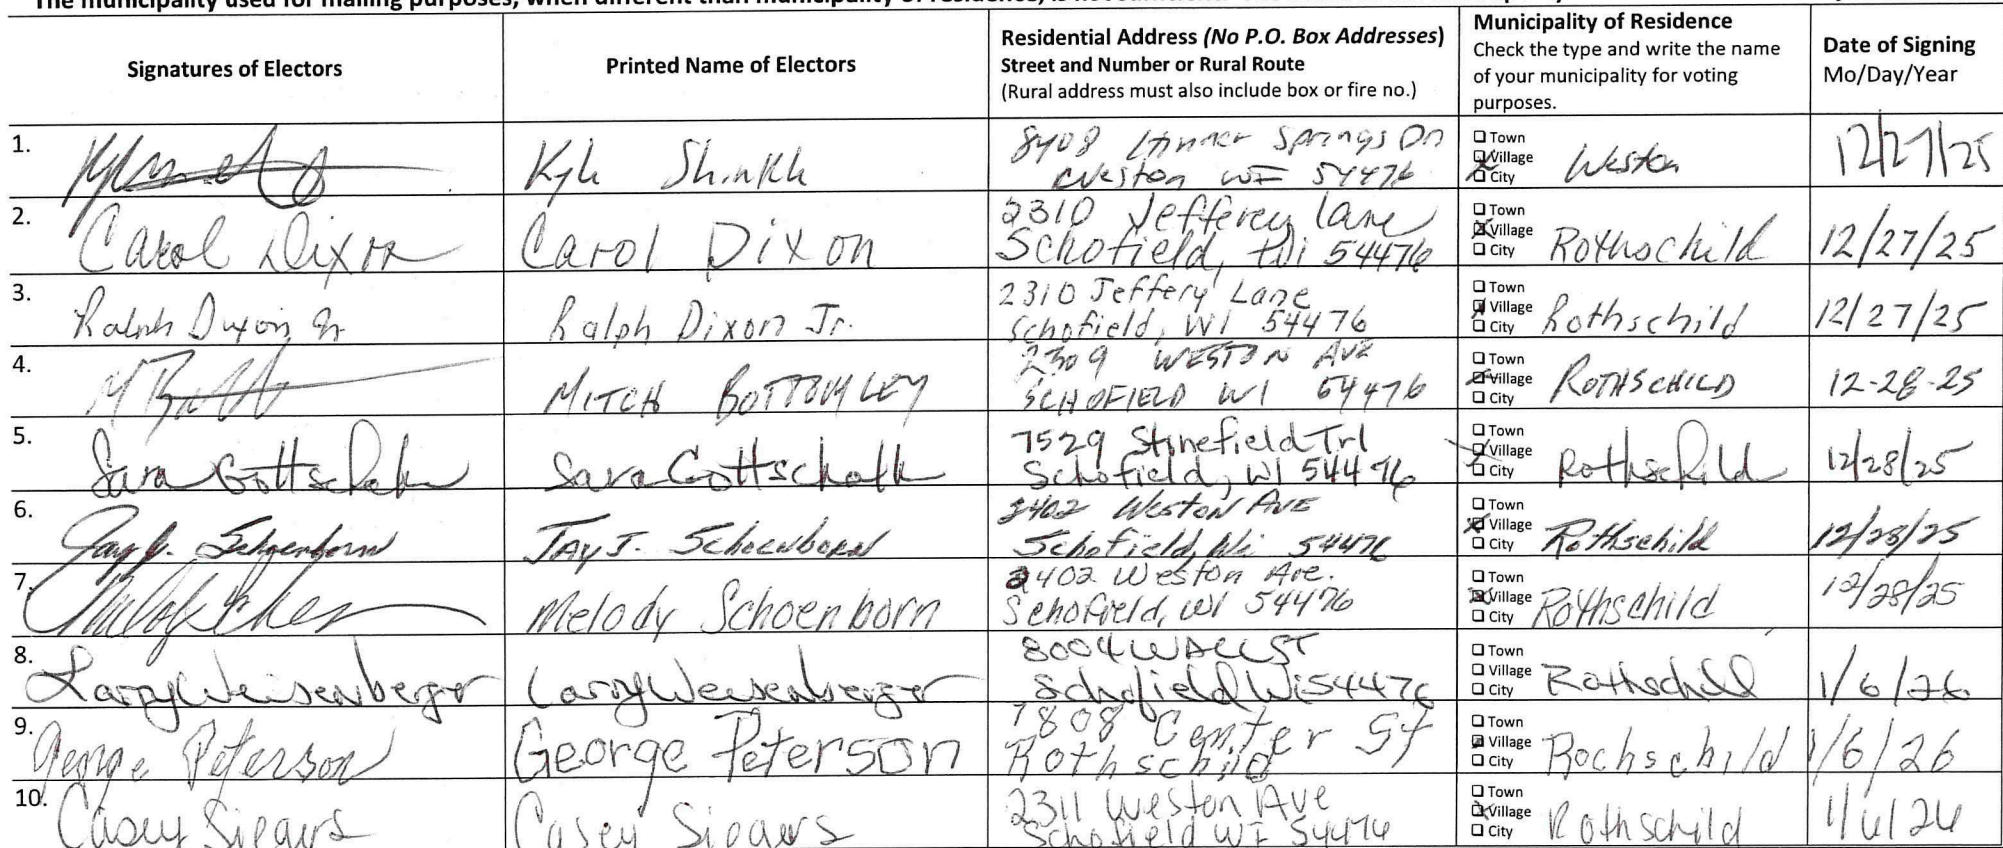 Signatures of Electors
Printed Name of Electors
Residential Address (No P.O. Box Addresses)
Street and Number or Rural Route
(Rural address must also include box or fire no.)
Municipality of Residence
Check the type and write the name
of your municipality for voting
purposes.
Date of Signing
Mo/Day/Year
1.
Kyle Shinkle
8408 Springs Dr
Weston WI 54476
Town
Village
City
Weston
12/27/25
2.
Carol Dixon
Carol Dixon
2310 Jefferey Lane
Schofield, Wi 54476
Town
Village
City
Rothschild
12/27/25
3.
Ralph Dixon Jr
Ralph Dixon Jr.
2310 Jeffery Lane
Schofield, WI 54476
Town
Village
City
Rothschild
12/27/25
4.
MITCH BOTTOMLEY
2309 WESTON AVE
SCHOFIELD WI 54476
Town
Village
City
ROTHSCHILD
12-28-25
5.
Sara Gottschalk
Sara Gottschalk
7529 Stonefield Trl
Schofield, WI 54476
Town
Village
City
Rothschild
12/28/25
6.
Jay J. Schoenborn
JAY J. SCHOENBORN
2402 Weston AVE
Schofield, Wi 54476
Town
Village
City
Rothschild
12/28/25
7.
Melody Schoenborn
2402 Weston Ave.
Schofield, WI 54476
Town
Village
City
Rothschild
12/28/25
8.
Larry Weisenberger
Larry Weisenberger
8004 WALL ST
Schofield Wi 54476
Town
Village
City
Rothschild
1/6/26
9.
George Peterson
George Peterson
7808 Center St
Rothschild
Town
Village
City
Rochschild
1/6/26
10.
Casey
Casey
2311 Weston Ave
Schofield WI 54476
Town
Village
City
Rothschild
1/6/26